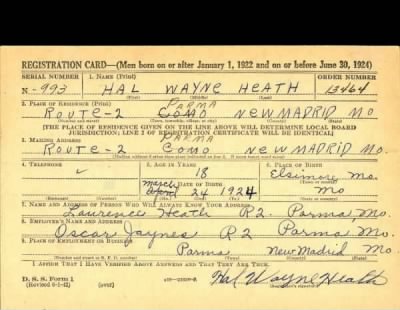 REGISTRATION CARD—(Men born on or after January 1, 1922 and on or before June 30, 1924)
SERIAL NUMBER 1. NAME (Print) ORDER NUMBER
N-993 HAL WAYNE HEATH 13464
(First) (Middle) (Last)
2. PLACE OF RESIDENCE (Print) PARMA
ROUTE-2 COMO NEW MADRID MO
(Number and street) (Town, township, village, or city) (County) (State)
[THE PLACE OF RESIDENCE GIVEN ON THE LINE ABOVE WILL DETERMINE LOCAL BOARD
JURISDICTION; LINE 2 OF REGISTRATION CERTIFICATE WILL BE IDENTICAL]
3. MAILING ADDRESS PARMA
ROUTE-2 COMO NEW MADRID MO.
[Mailing address if other than place indicated on line 2. If same insert word same]
4. TELEPHONE 5. AGE IN YEARS 6. PLACE OF BIRTH
18 Elsimore Mo.
March DATE OF BIRTH
24 1924 Mo
7. NAME AND ADDRESS OF PERSON WHO WILL ALWAYS KNOW YOUR ADDRESS
Laurence Heath R2. Parma Mo.
8. EMPLOYER'S NAME AND ADDRESS
Oscar Jaynes R2 Parma Mo.
9. PLACE OF EMPLOYMENT OR BUSINESS
Parma New Madrid Mo.
(Number and street or R. F. D. number) (Town) (County) (State)
I AFFIRM THAT I HAVE VERIFIED ABOVE ANSWERS AND THAT THEY ARE TRUE.
D. S. S. Form 1
(Revised 6-1-42) (over) Hal Wayne Heath